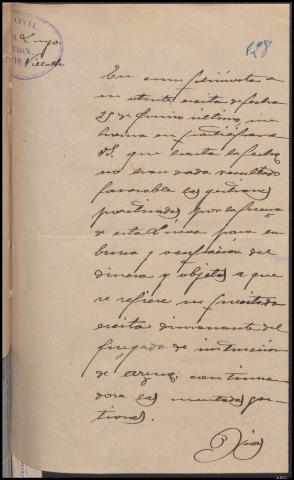 CIVIL
128
En cumplimiento a
su atento escrito de fecha
25 de Junio último, me
honro en participar a
VS. que hasta la fecha
no han dado resultado
favorable las gestiones
practicadas por la fuerza
de esta Línea para la
busca y ocupación del
dinero y objetos a que
se refiere su precitado
escrito dimanante del
Juzgado de instrucción
de continuan
dose las mentadas ges
tiones.